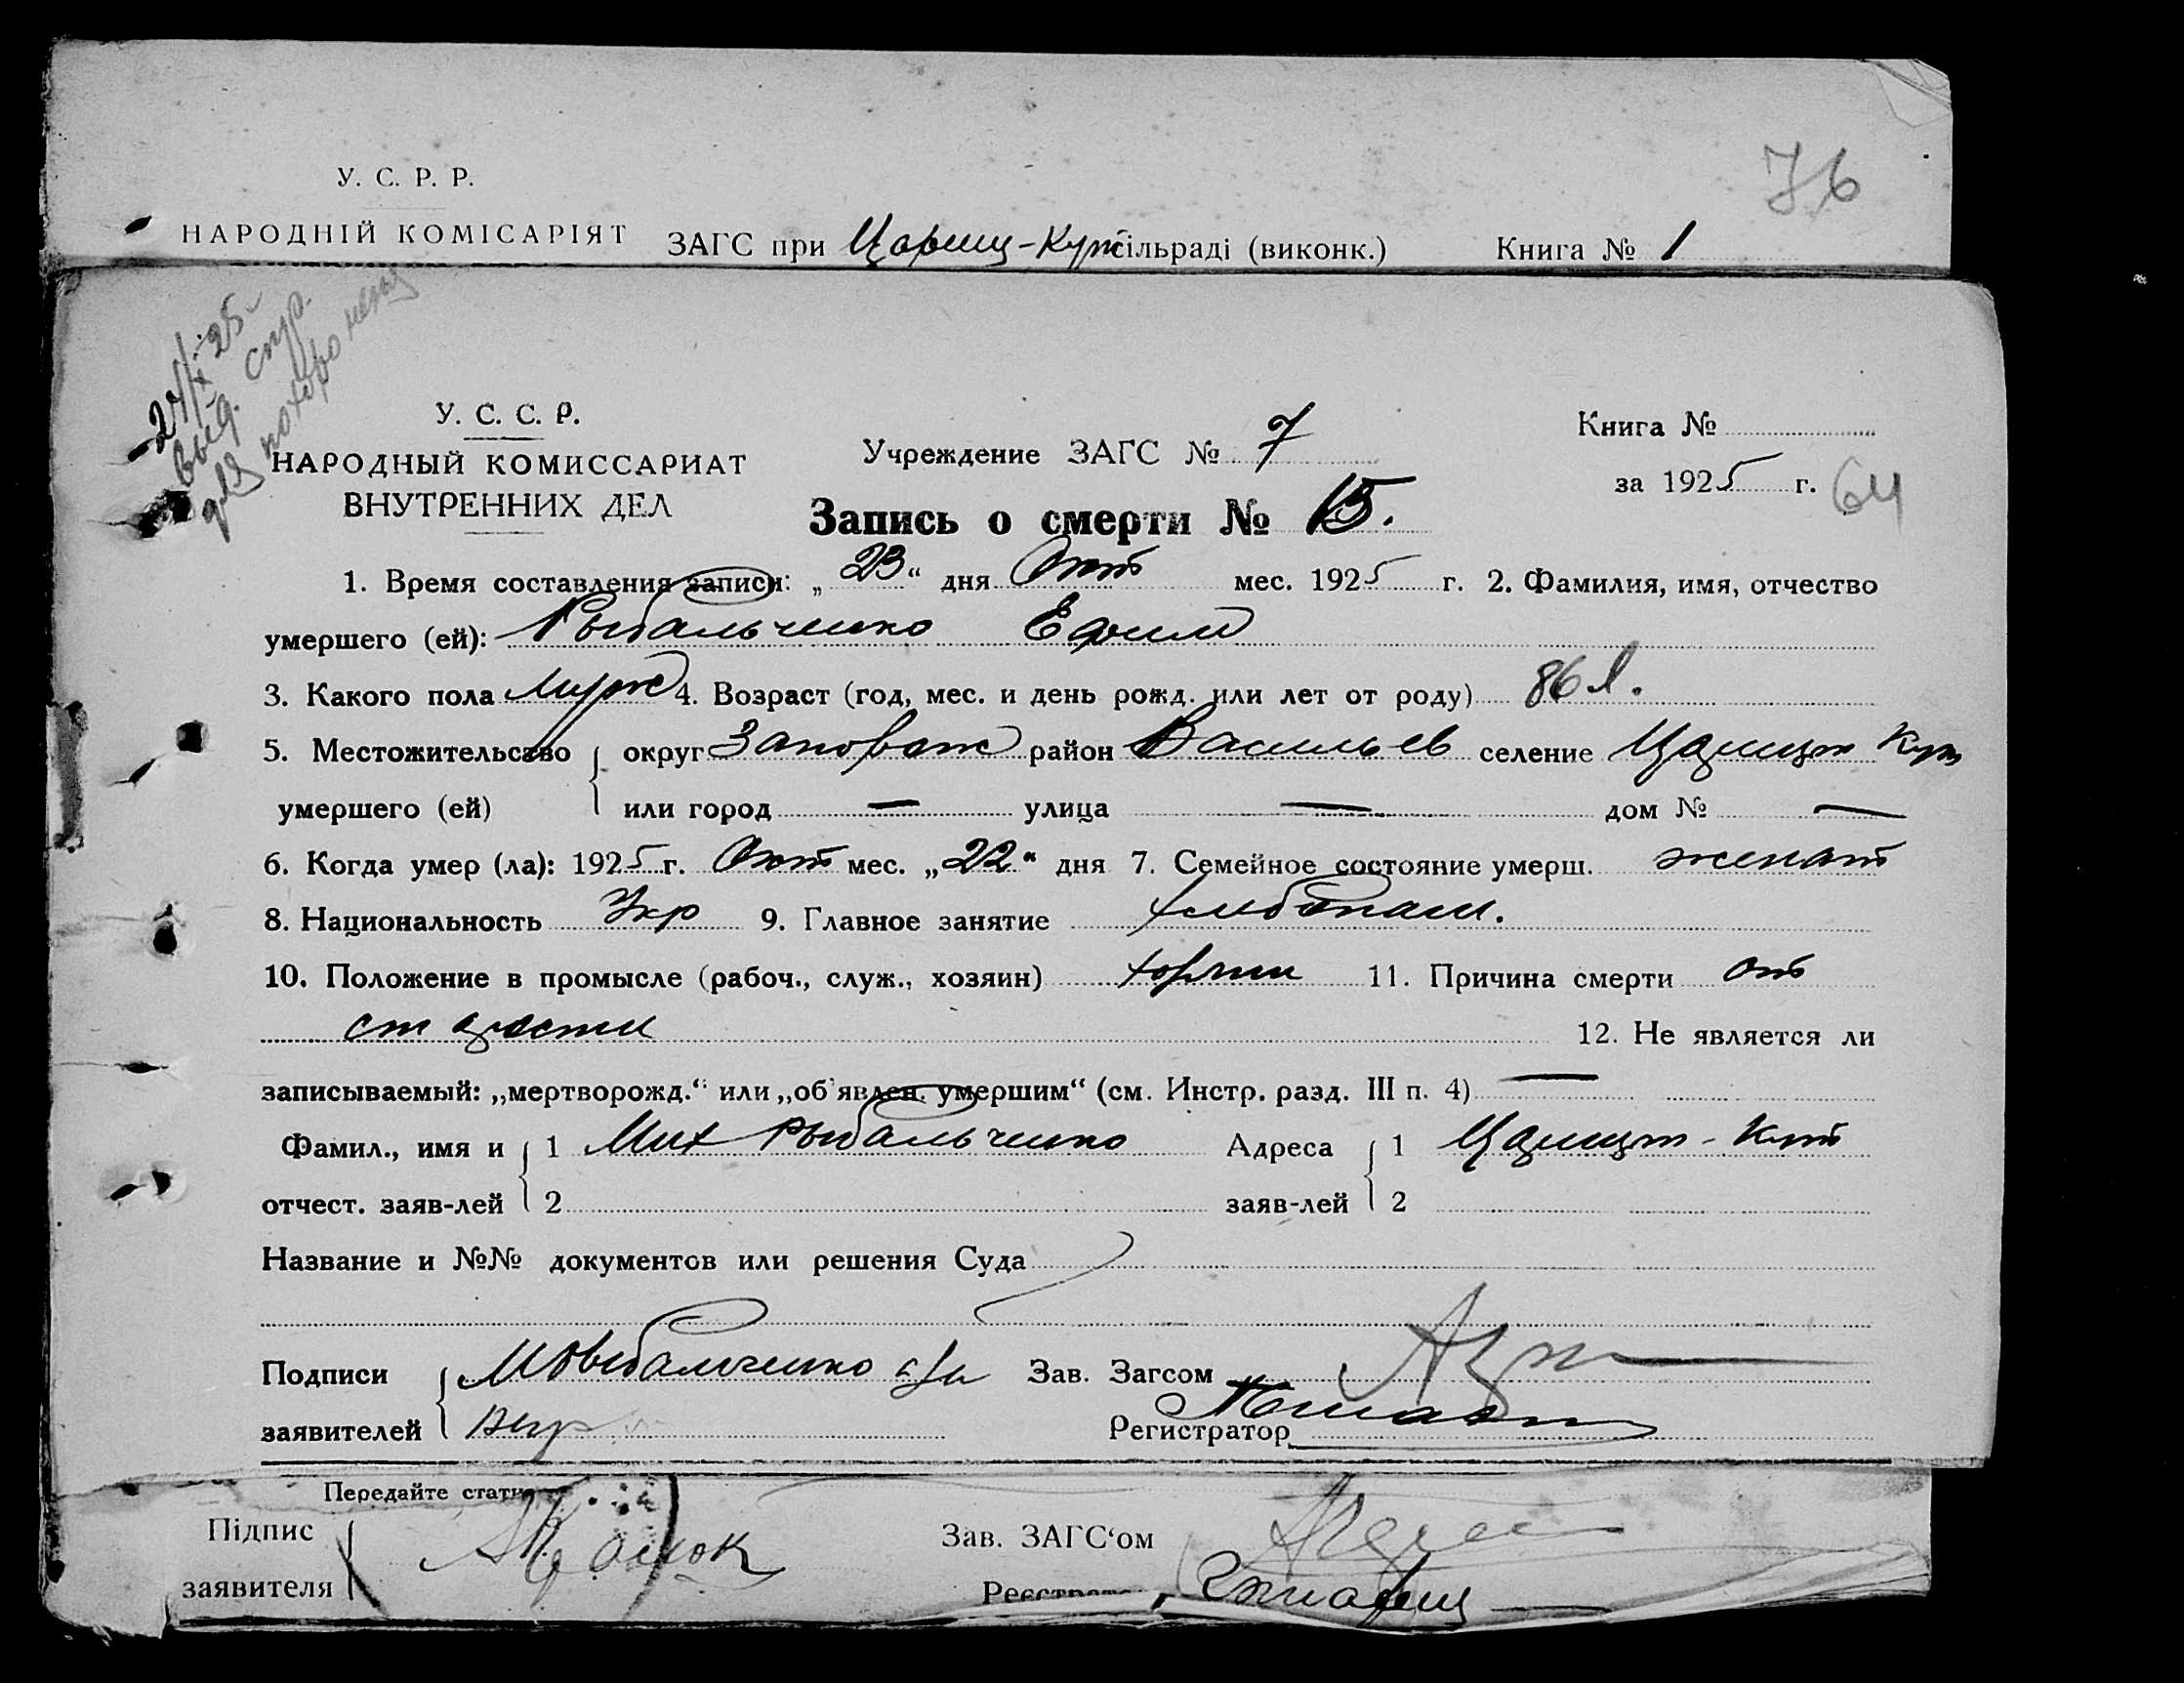 У. С. Р. Р.
76
НАРОДНІЙ КОМІСАРІЯТ ЗАГС при Цариц-Кут сільраді (виконк.) Книга № 1
24/X-25
выд. спр.
для похорон
У. С. С. Р.
НАРОДНЫЙ КОМИССАРИАТ
ВНУТРЕННИХ ДЕЛ
Учреждение ЗАГС № 7
Книга №
за 1925 г. 64
Запись о смерти № 15.
1. Время составления записи: „23“ дня Окт мес. 1925 г. 2. Фамилия, имя, отчество
умершего (ей): Рыбальченко Ефим
3. Какого пола Муж 4. Возраст (год, мес. и день рожд. или лет от роду) 86 л.
5. Местожительсво округ Запорож район Васильев селение Царицын Кут
умершего (ей) или город — улица — дом № —
6. Когда умер (ла): 1925 г. Окт мес. „22“ дня 7. Семейное состояние умерш. женат
8. Национальность Укр 9. Главное занятие хлебопаш.
10. Положение в промысле (рабоч., служ., хозяин) 11. Причина смерти от
старости 12. Не является ли
записываемый: „мертворожд.“ или „об'явлен. умершим“ (см. Инстр. разд. III п. 4) —
Фамил., имя и 1 Мих Рыбальченко Адреса 1 Царицын-Кут
отчест. заяв-лей 2 заяв-лей 2
Название и №№ документов или решения Суда
Подписи МРыбальченко Зав. Загсом
заявителей Регистратор
Передайте стати
Підпис Зав. ЗАГС‘ом
заявителя Реєстрато